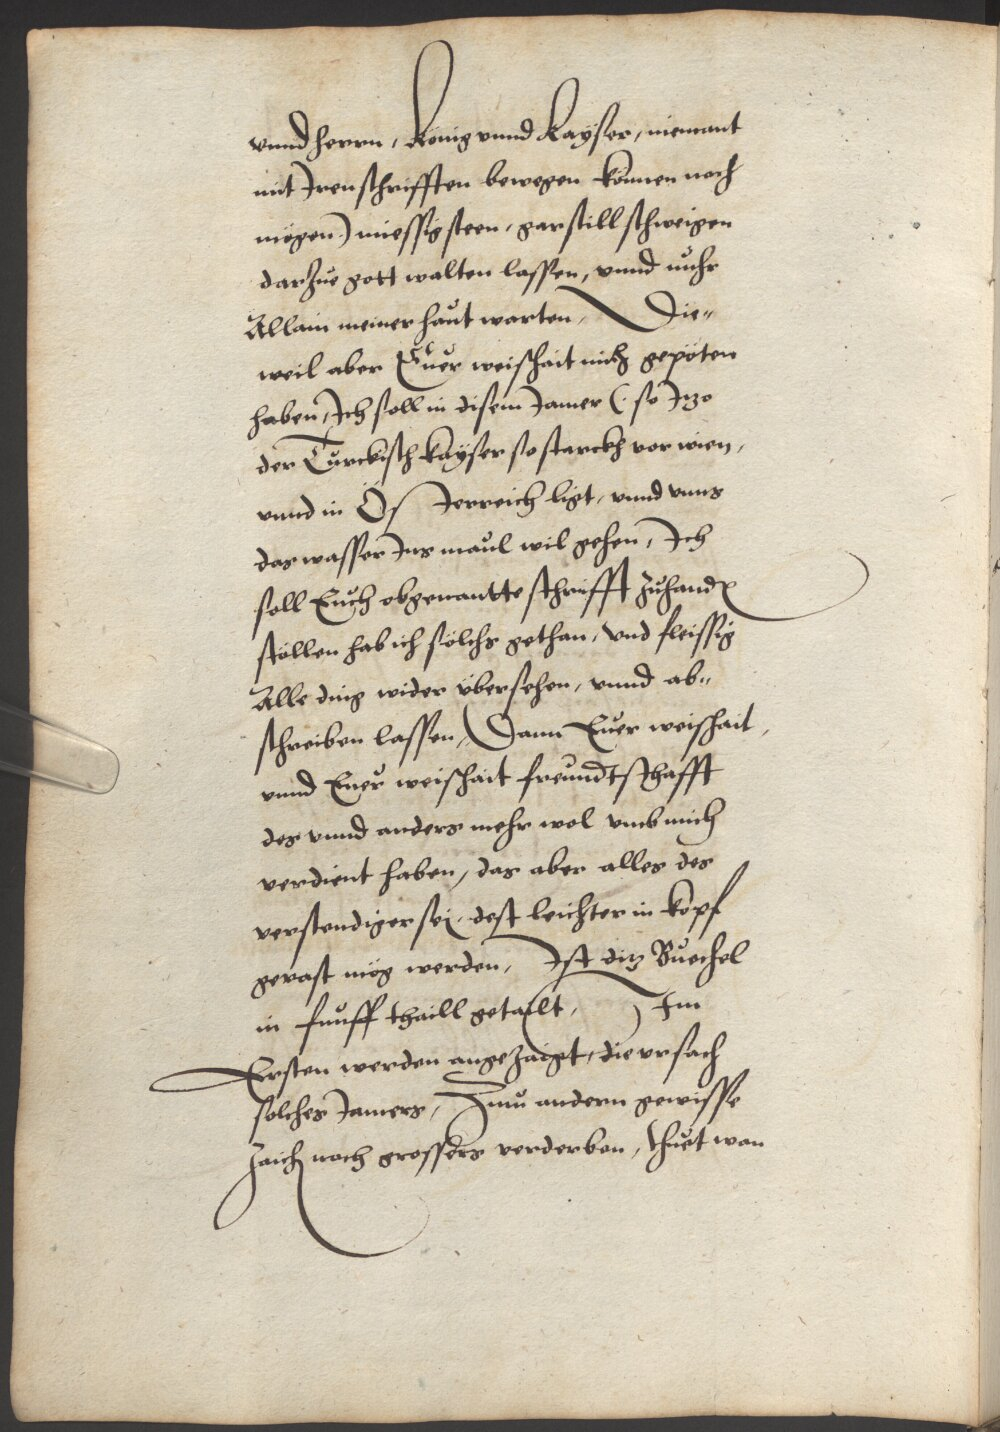 vnnd herrn, König vnnd Kayser, niemant
mit Jren schrifften bewegen können noch
mögen) müessig steen, gar still schweigen
dar Zue gott walten lassen, vnnd nuhr
Allain meiner haut warten, Die„
weil aber Euer weishait mich gepöten
haben, Ich soll in disem Jamer (: so Jzo
der Turckisch Kayser so starckh vor wien,
vnnd in Össterreich ligt, vnnd vnns
das wasser Jns maul wil gehen, Ich
soll Euch obgenantte schrifft Zuhanden
stöllen hab ich sölchs gethan, vnd fleissig
Alle ding wider übersehen, vnnd ab„
schreiben lassen, Dann Euer weishait,
vnnd Euer weishait freundtschafft
des vnnd anders mehr wol vmb mich
verdient haben, das aber alles des
verstendiger sei, dest leichter in kopf
gevast mög werden, Ist ditz Buechel
in funff thaill getailt, Im
Ersten werden angezaigt, die vrsach
solches Jamers, Zum andern gewisse
Zaich noch grossers verderben, thuet man